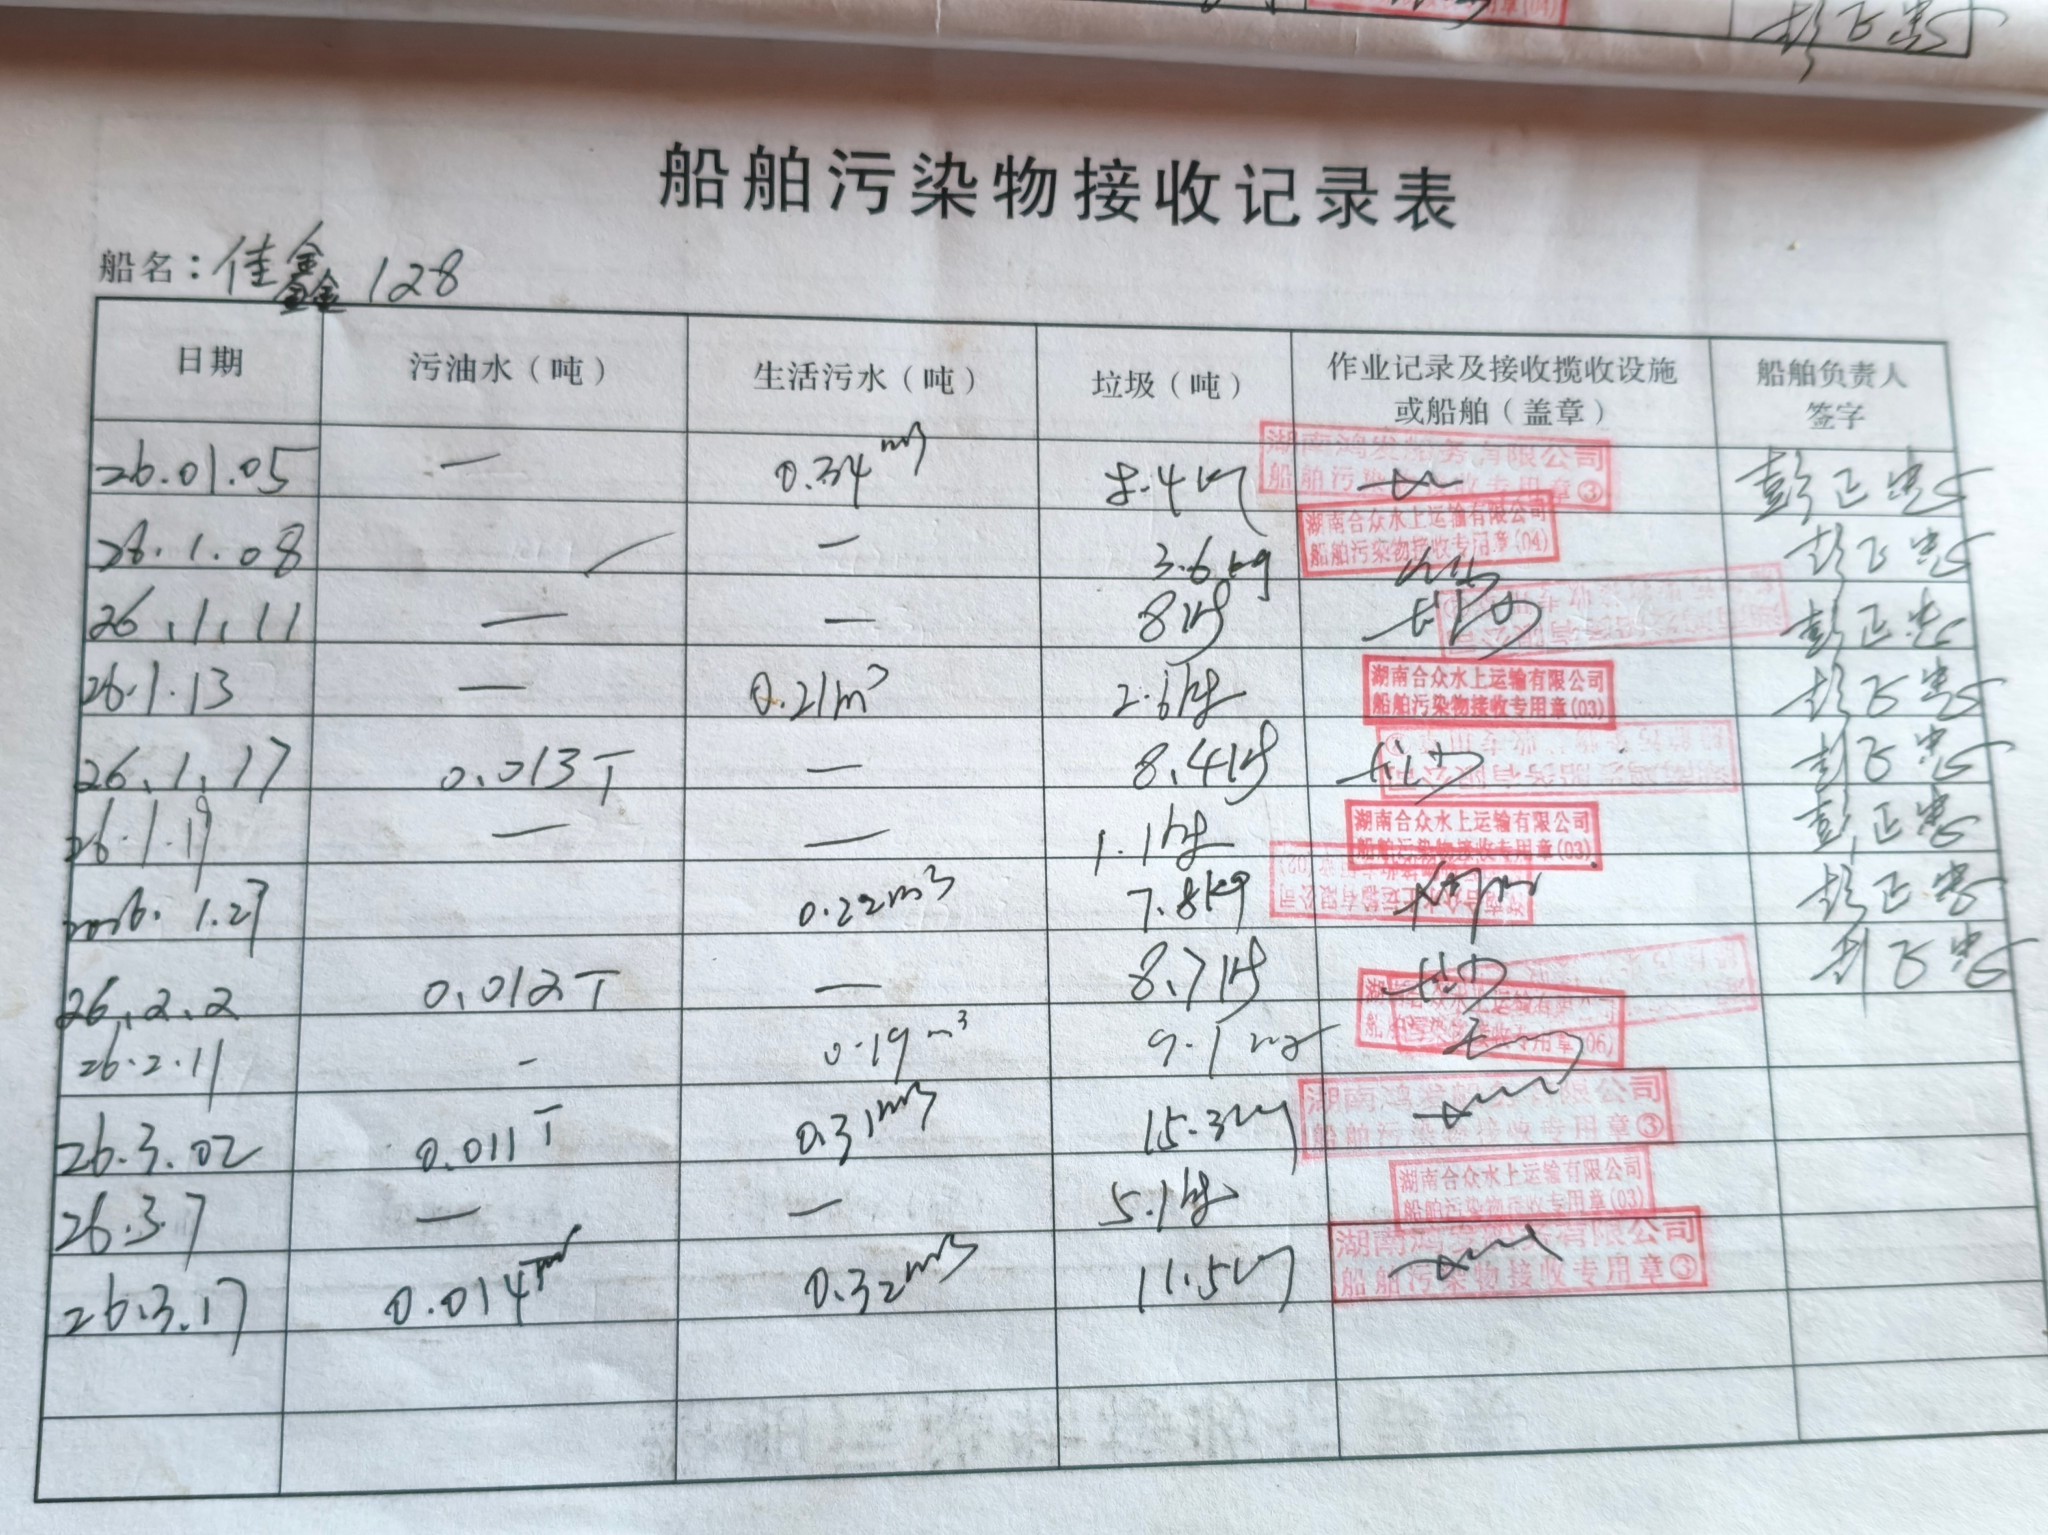 船舶污染物接收记录表
船名：佳鑫128
日期 污油水（吨） 生活污水（吨） 垃圾（吨） 作业记录及接收揽收设施或船舶（盖章） 船舶负责人签字
26.01.05 — 0.34m3 湖南鸿发船务有限公司 船舶污染物接收专用章③ 彭正忠
26.1.08 — 3.6kg 湖南合众水上运输有限公司 船舶污染物接收专用章(04) 彭正忠
26.1.11 — — 8kg 彭正忠
26.1.13 — 0.21m3 2.6kg 湖南合众水上运输有限公司 船舶污染物接收专用章(03) 彭正忠
26.1.17 0.013T — 8.4kg 彭正忠
26.1.19 — — 1.1kg 湖南合众水上运输有限公司 船舶污染物接收专用章(03) 彭正忠
2026.1.27 0.22m3 7.8kg 彭正忠
26.2.2 0.012T — 8.7kg 彭正忠
26.2.11 - 0.19m3 9.1kg 湖南合众水上运输有限公司 船舶污染物接收专用章(06)
26.3.02 0.011T 0.31m3 15.3kg 湖南鸿发船务有限公司 船舶污染物接收专用章③
26.3.7 — — 5.1kg 湖南合众水上运输有限公司 船舶污染物接收专用章(03)
26.3.17 0.014 0.32m3 11.5kg 湖南鸿发船务有限公司 船舶污染物接收专用章③